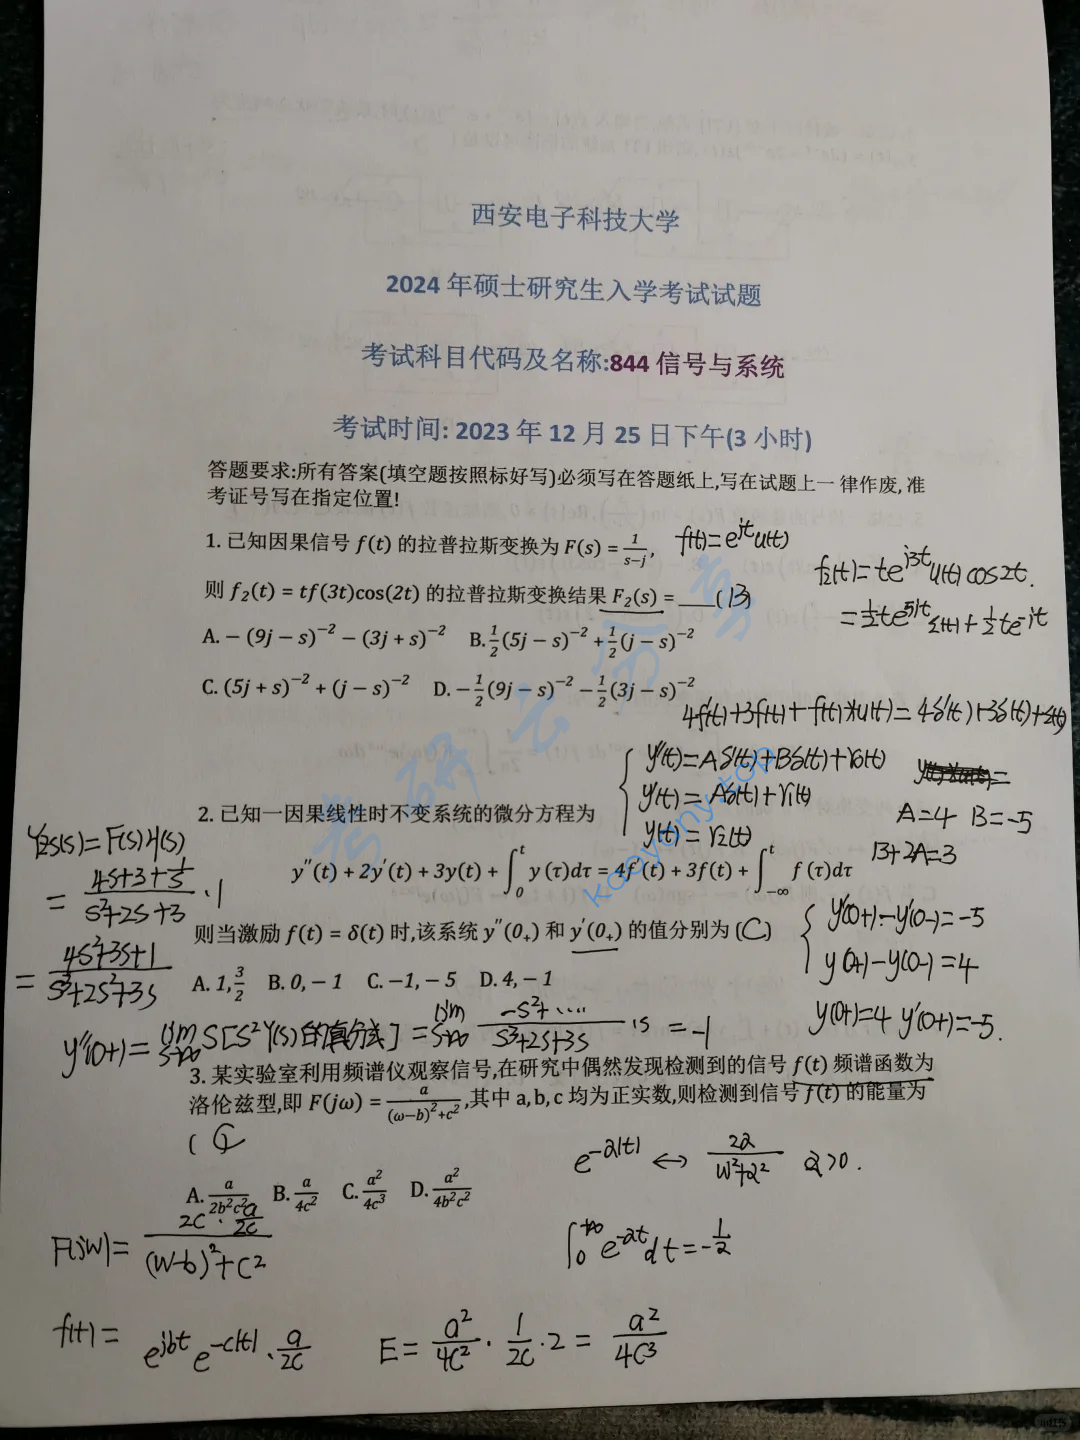 西安电子科技大学
2024 年硕士研究生入学考试试题
考试科目代码及名称:844 信号与系统
考试时间: 2023 年 12 月 25 日下午(3 小时)
答题要求:所有答案(填空题按照标好写)必须写在答题纸上,写在试题上一 律作废, 准
考证号写在指定位置!
1. 已知因果信号 f(t) 的拉普拉斯变换为 F(s) = 1/(s−j), f(t)=e^{jt}u(t)
f₂(t)=te^{j3t}u(t)cos2t.
则 f₂(t) = tf(3t)cos(2t) 的拉普拉斯变换结果 F₂(s) = ___( B )
=½te^{5jt}ε(t)+½te^{jt}
A. − (9j − s)⁻² − (3j + s)⁻² B. ½(5j − s)⁻² + ½(j − s)⁻²
C. (5j + s)⁻² + (j − s)⁻² D. −½(9j − s)⁻² − ½(3j − s)⁻²
4f'(t)+3f(t)+f(t)*u(t)=4δ'(t)+3δ(t)+ε(t)
y''(t)=Aδ'(t)+Bδ(t)+r₀(t)
y'(t)=Aδ(t)+r₁(t)
y(t)=r₂(t)
A=4 B=-5
B+2A=3
2. 已知一因果线性时不变系统的微分方程为
y''(t) + 2y'(t) + 3y(t) + ∫₀ᵗ y(τ)dτ = 4f'(t) + 3f(t) + ∫₋∞ᵗ f(τ)dτ
Yzs(s)=F(s)H(s)
= (4s+3+1/s)/(s²+2s+3) ·1
= (4s²+3s+1)/(s³+2s²+3s)
则当激励 f(t) = δ(t) 时,该系统 y''(0₊) 和 y'(0₊) 的值分别为 (C)
y'(0+)-y'(0-)=-5
y(0+)-y(0-)=4
A. 1, 3/2 B. 0, − 1 C. −1, − 5 D. 4, − 1
y(0+)=4 y'(0+)=-5.
y''(0+)=lim s→∞ s[s²Y(s)的真分式]=lim s→∞ (-s²+……)/(s³+2s+3s) ·s =-1
3. 某实验室利用频谱仪观察信号,在研究中偶然发现检测到的信号 f(t) 频谱函数为
洛伦兹型,即 F(jω) = a/((ω−b)²+c²),其中 a,b,c 均为正实数,则检测到信号 f(t) 的能量为
( C
e^{-α|t|} ↔ 2α/(w²+α²) α>0.
A. a/(2b²c²) B. a/(4c²) C. a²/(4c³) D. a²/(4b²c²)
F(jw)= (2c·a/2c)/((w-b)²+c²)
∫₀^{+∞} e^{-αt}dt=-1/α
f(t)= e^{jbt} e^{-c|t|}·a/2c
E= a²/4c² · 1/2c ·2 = a²/4c³
考研云分享
kaoyany.top